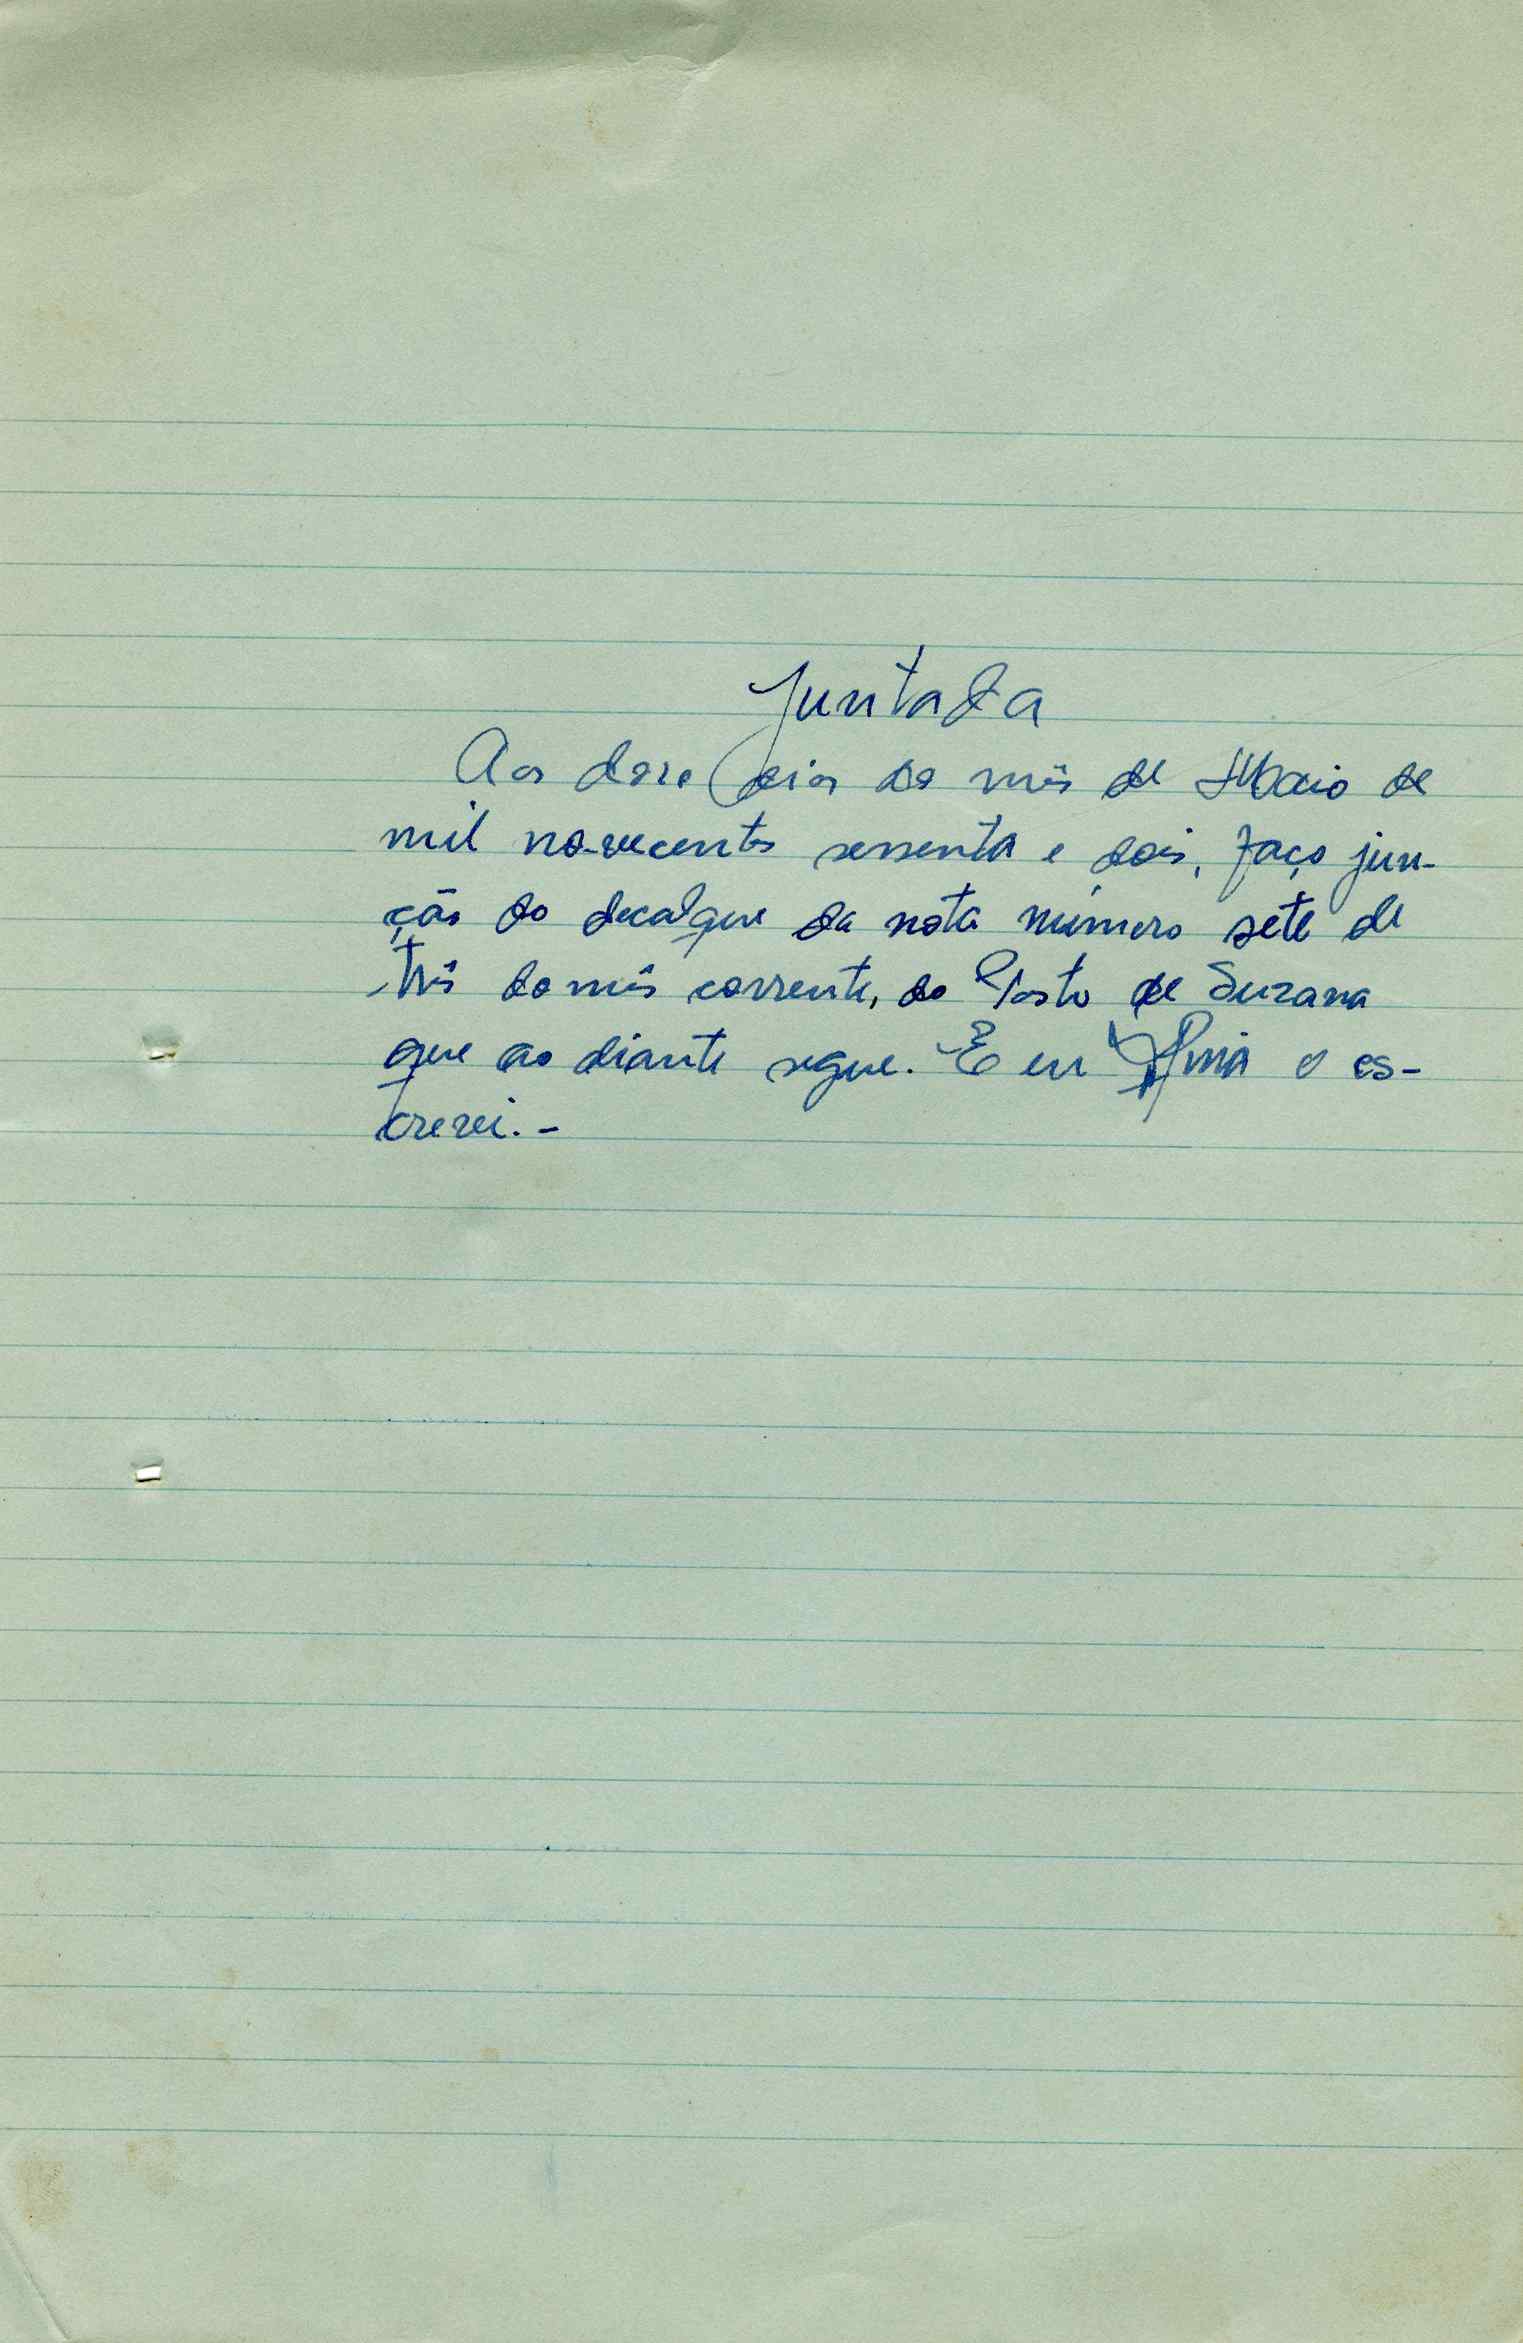 Juntada
Aos doze dias do mês de Maio de
mil novecentos sessenta e dois, faço jun-
ção do decalque da nota número sete de
três do mês corrente, do Posto de Suzana
que ao diante segue. E eu o es-
crevi. -